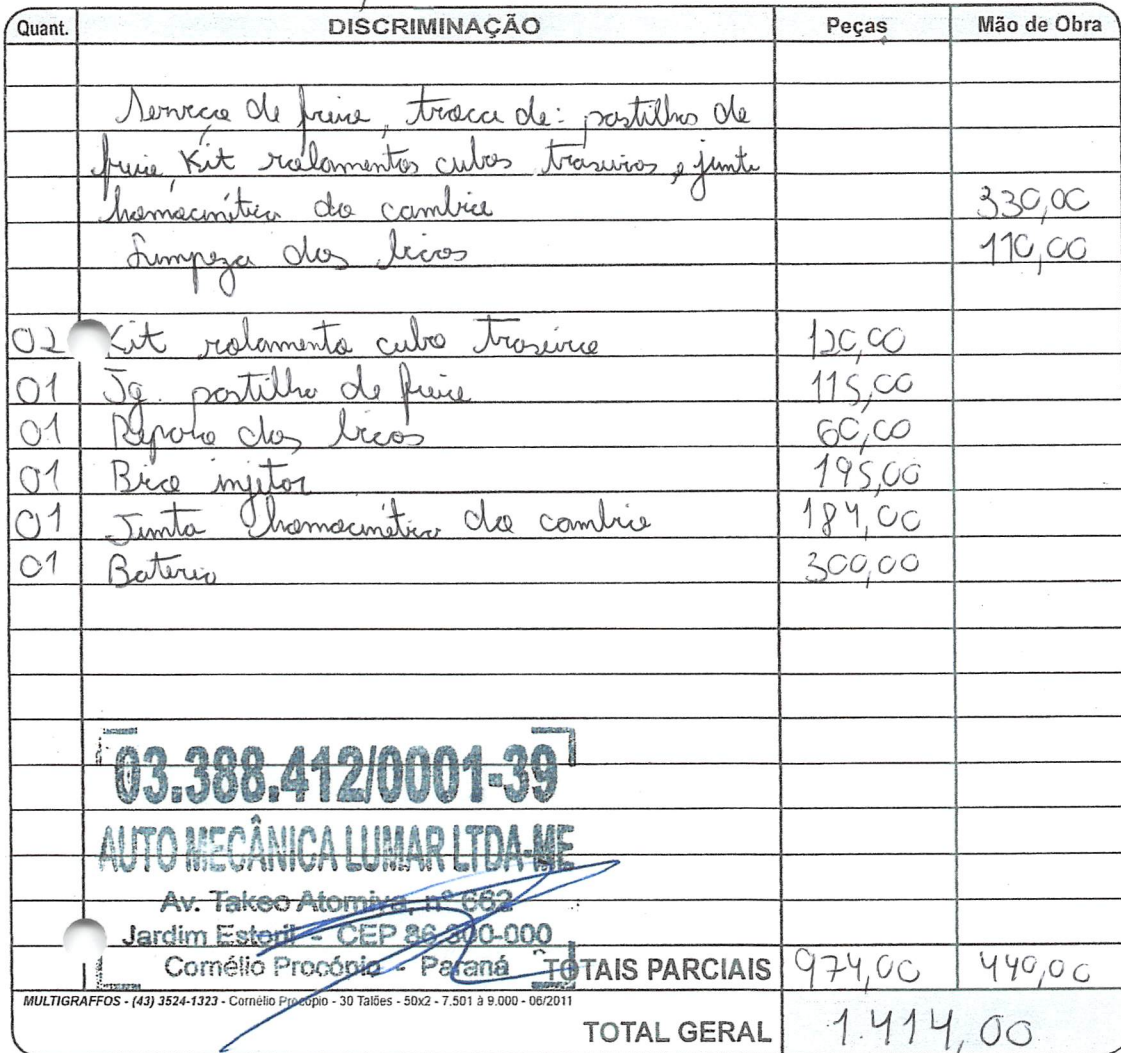 Quant. DISCRIMINAÇÃO Peças Mão de Obra
Serviço de freio, troca de: pastilhas de
freio, Kit rolamentos cubos traseiros, e junta
homocinética do cambio 330,00
Limpeza dos bicos 110,00
02 Kit rolamento cubo traseiro 120,00
01 Jg. pastilha de freio 115,00
01 Reparo dos bicos 60,00
01 Bico injetor 195,00
01 Junta homocinética do cambio 184,00
01 Bateria 300,00
03.388.412/0001-39
AUTO MECÂNICA LUMAR LTDA-ME
Av. Takeo Atomiya, nº 662
Jardim Estoril - CEP 86-300-000
Cornélio Procópio - Paraná
TOTAIS PARCIAIS 974,00 440,00
MULTIGRAFFOS - (43) 3524-1323 - Cornélio Procópio - 30 Talões - 50x2 - 7.501 à 9.000 - 06/2011
TOTAL GERAL 1.414,00